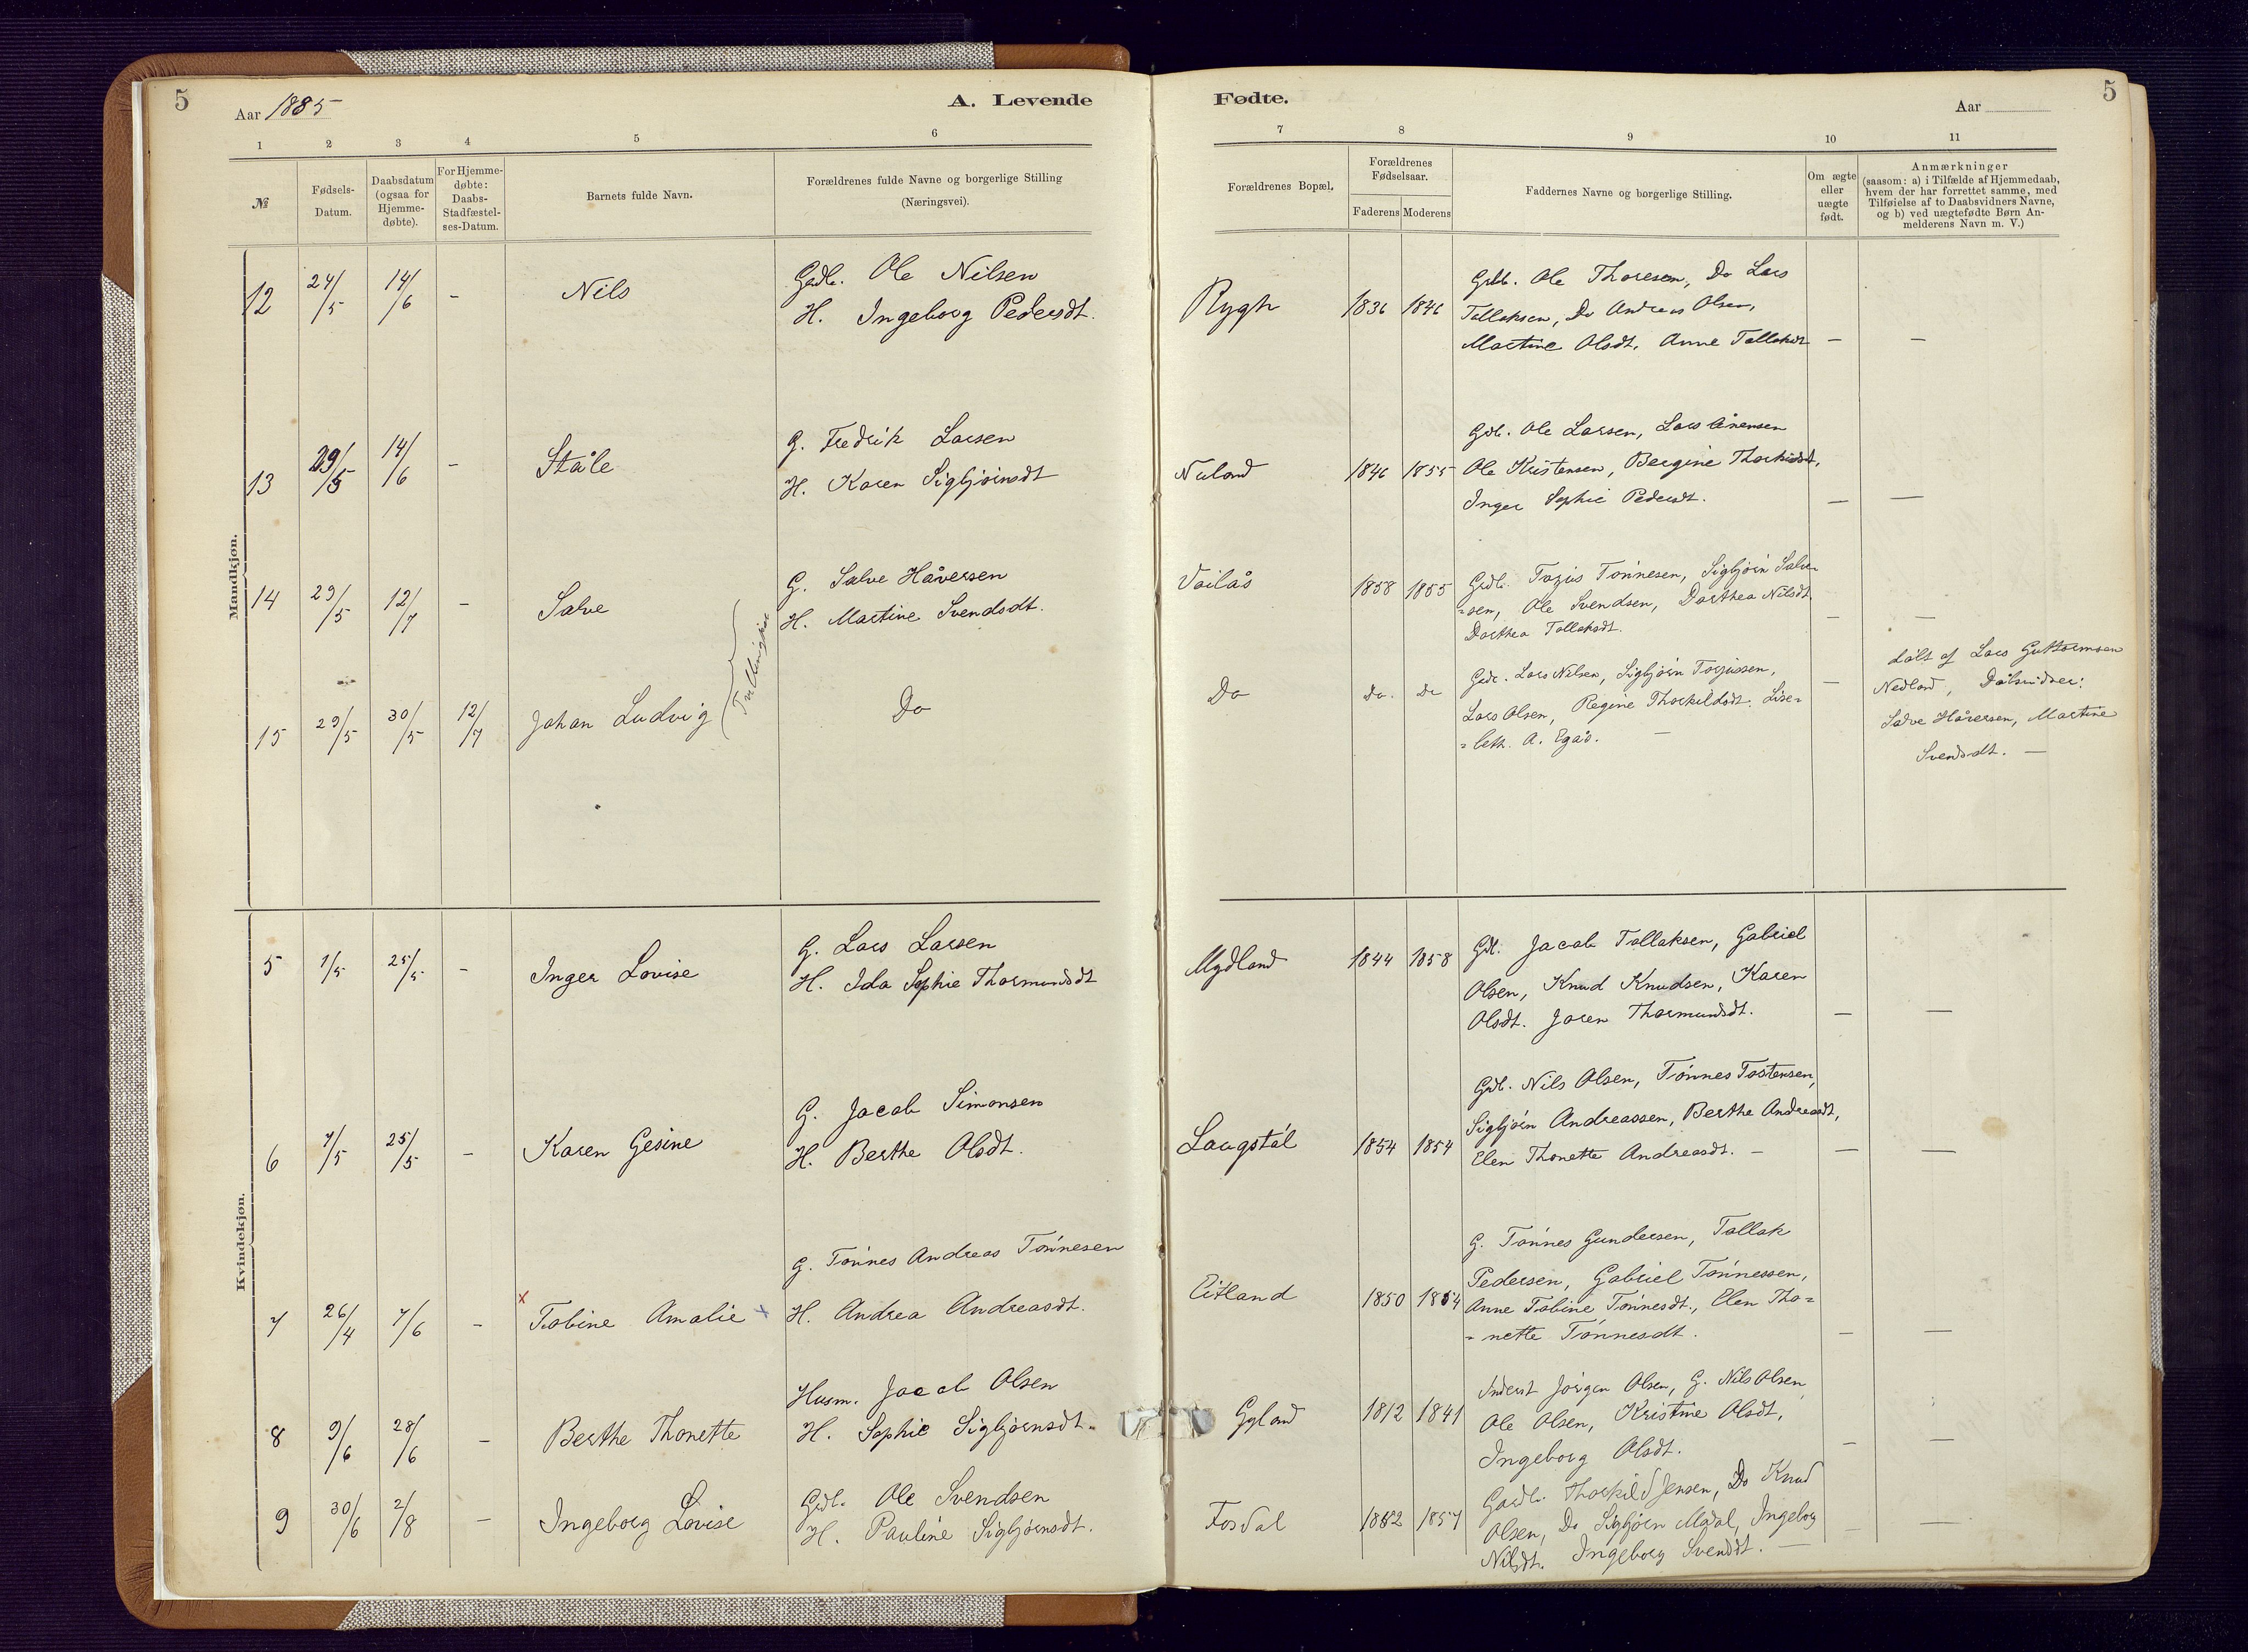 5
Aar 1885
A. Levende
Fødte.
Aar
5
1 2 3 4 5 6 7 8 9 10 11
№
Fødsels-Datum.
Daabsdatum (ogsaa for Hjemme-døbte).
For Hjemme-døbte: Daabs-Stadfæstel-ses-Datum.
Barnets fulde Navn.
Forældrenes fulde Navne og borgerlige Stilling (Næringsvei).
Forældrenes Bopæl.
Forældrenes Fødselsaar.
Faderens Moderens
Faddernes Navne og borgerlige Stilling.
Om ægte eller uægte født.
Anmærkninger
(saasom: a) i Tilfælde af Hjemmedaab,
hvem der har forrettet samme, med
Tilføielse af to Daabsvidners Navne,
og b) ved uægtefødte Børn An-
melderens Navn m. V.)
Mandkjøn.
12 24/5 14/6 - Nils
Gdb. Ole Nilsen
H. Ingeborg Pedersdt.
Rygh 1836 1846
Gdb. Ole Thoresen, Do Lars
Tallaksen, Do Andreas Olsen,
Martine Olsdt. Anne Tallaksdt — —
13 29/5 14/6 - Ståle
G. Fredrik Larsen
H. Karen Sigbjørnsdt
Nuland 1846 1855
Gdb. Ole Larsen, Lars
Ole Kristensen, Bergine
Inger Sophie Pedersdt. — —
14 29/5 12/7 - Salve
G. Salve Håversen
H. Martine Svendsdt.
1858 1855
Gdb. Tønnesen, Sigbjørn Salve-
=sen, Ole Svendsen, Dorthea Nilsdt.
Dorthea Tallaksdt. — —
15 29/5 30/5 12/7 Johan Ludvig
Do
Do Do. Do
Gdb. Lars Nilsen, Sigbjørn Torjussen,
Lars Olsen, Regine Thorkildsdt. Lise=
=beth. A. Egås. — —
døbt af Lars Guttormsen
Nedland, Dåbsvidner:
Salve Håversen, Martine
Svendsdt. —
Kvindekjøn.
5 1/5 25/5 - Inger Lovise
G. Lars Larsen
H. Ida Sophie Thormundsdt
Mydland 1844 1858
Gdb. Jacob Tallaksen, Gabriel
Olsen, Knud Knudsen, Karen
Olsdt. Joren Thormundsdt. — —
6 7/5 25/5 - Karen Gesine
G. Jacob Simonsen
H. Berthe Olsdt.
Laugstøl 1854 1854
Gdb. Nils Olsen, Tønnes Tostensen,
Sigbjørn Andreassen, Berthe Andreasdt,
Elen Thonette Andreasdt. — — —
7 26/4 7/6 - x Tobine Amalie +
G. Tønnes Andreas Tønnesen
H. Andrea Andreasdt.
Eitland 1850 1854
G. Tønnes Gundersen, Tallak
Pedersen, Gabriel Tønnessen,
Anne Tobine Tønnesdt., Elen Tho=
=nette Tønnesdt. — —
8 9/6 28/6 - Berthe Thonette
Husm. Jacob Olsen
H. Sophie Sigbjørnsdt.
Gyland 1812 1841
Inderst Jørgen Olsen, G. Nils Olsen
Ole Olsen, Kristine Olsdt,
Ingeborg Olsdt. — —
9 30/6 2/8 - Ingeborg Lovise
Gdb. Ole Svendsen
H. Pauline Sigbjørnsdt.
Fosdal 1852 1857
Gaardb. Thorkild Jensen, Do Knud
Olsen, Do Sigbjørn Ingeborg
Nilsdt. Ingeborg Svendsdt. — — —